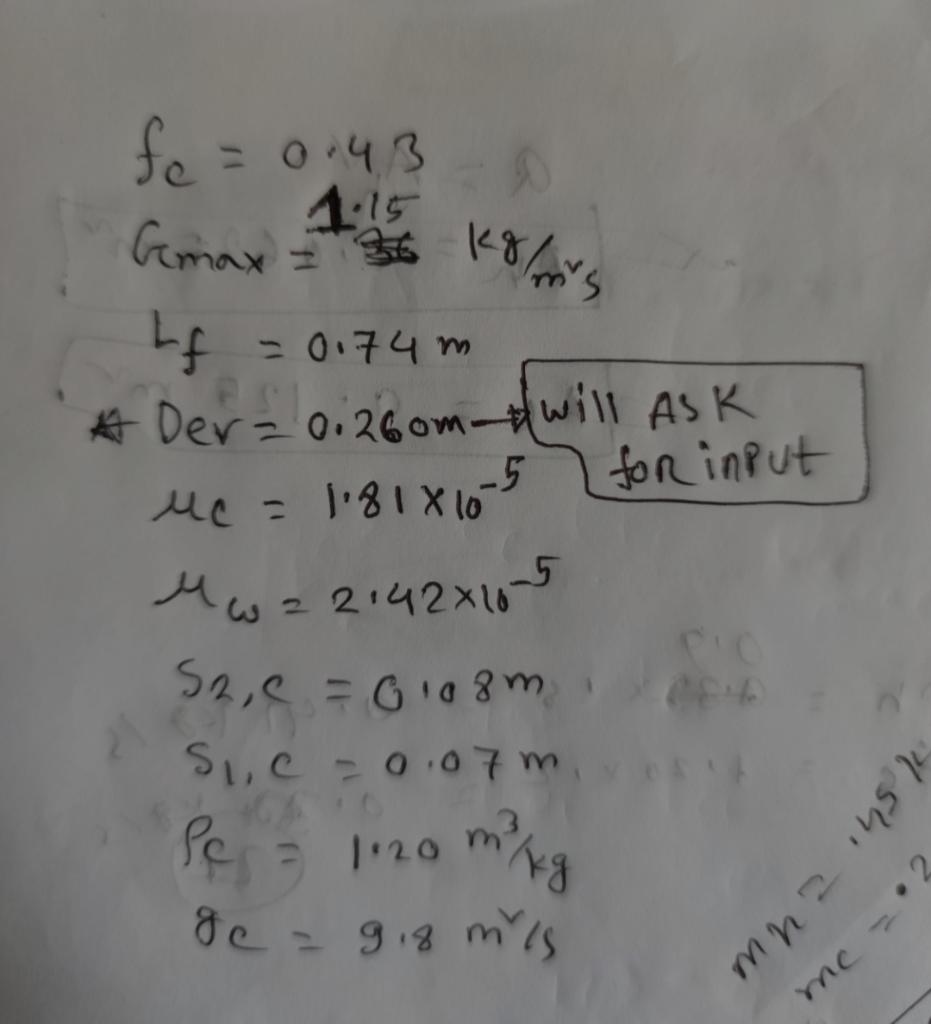 fc = 0.43
1.15
Gmax = kg/m²s
Lf = 0.74 m
* Dev = 0.260m → will ASK
for input
μc = 1.81 × 10⁻⁵
μω = 2.42×10⁻⁵
S2,c = 0.08m
S1,c = 0.07 m
ρc = 1.20 m³/kg
gc = 9.8 m²/s
mc = .2